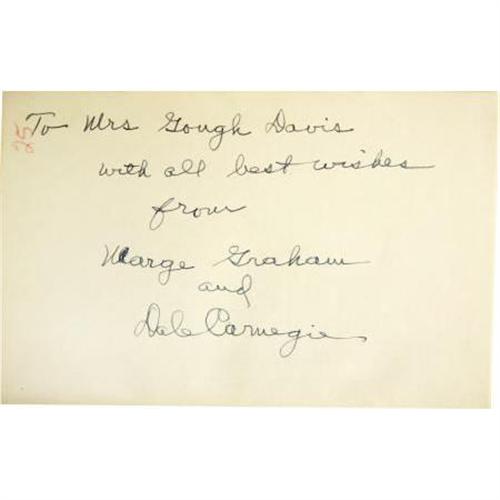 25
To Mrs Gough Davis
with all best wishes
from
Marge Graham
and
Dale Carnegie